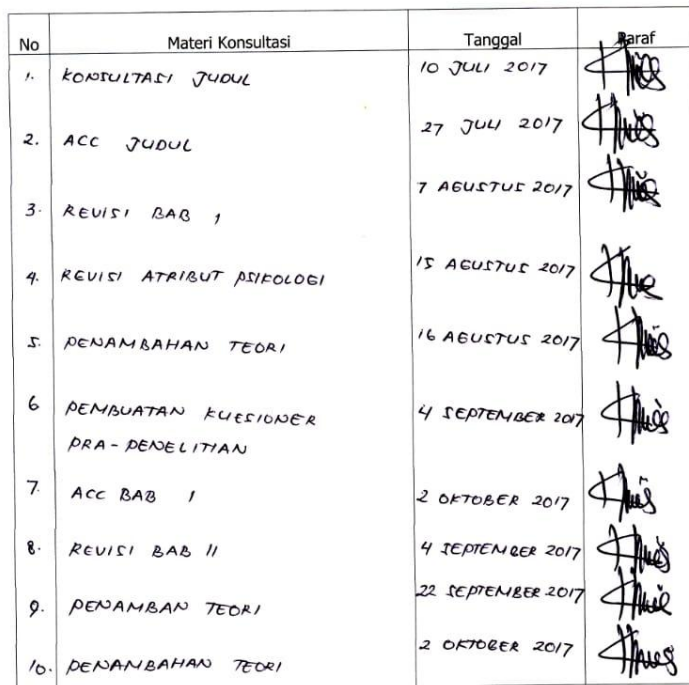 No Materi Konsultasi Tanggal Paraf
1. KONSULTASI JUDUL 10 JULI 2017
2. ACC JUDUL 27 JULI 2017
3. REVISI BAB 1 7 AGUSTUS 2017
4. REVISI ATRIBUT PSIKOLOGI 15 AGUSTUS 2017
5. PENAMBAHAN TEORI 16 AGUSTUS 2017
6 PEMBUATAN KUESIONER 4 SEPTEMBER 2017
PRA-PENELITIAN
7. ACC BAB I 2 OKTOBER 2017
8. REVISI BAB II 4 SEPTEMBER 2017
9. PENAMBAN TEORI 22 SEPTEMBER 2017
10. PENAMBAHAN TEORI 2 OKTOBER 2017